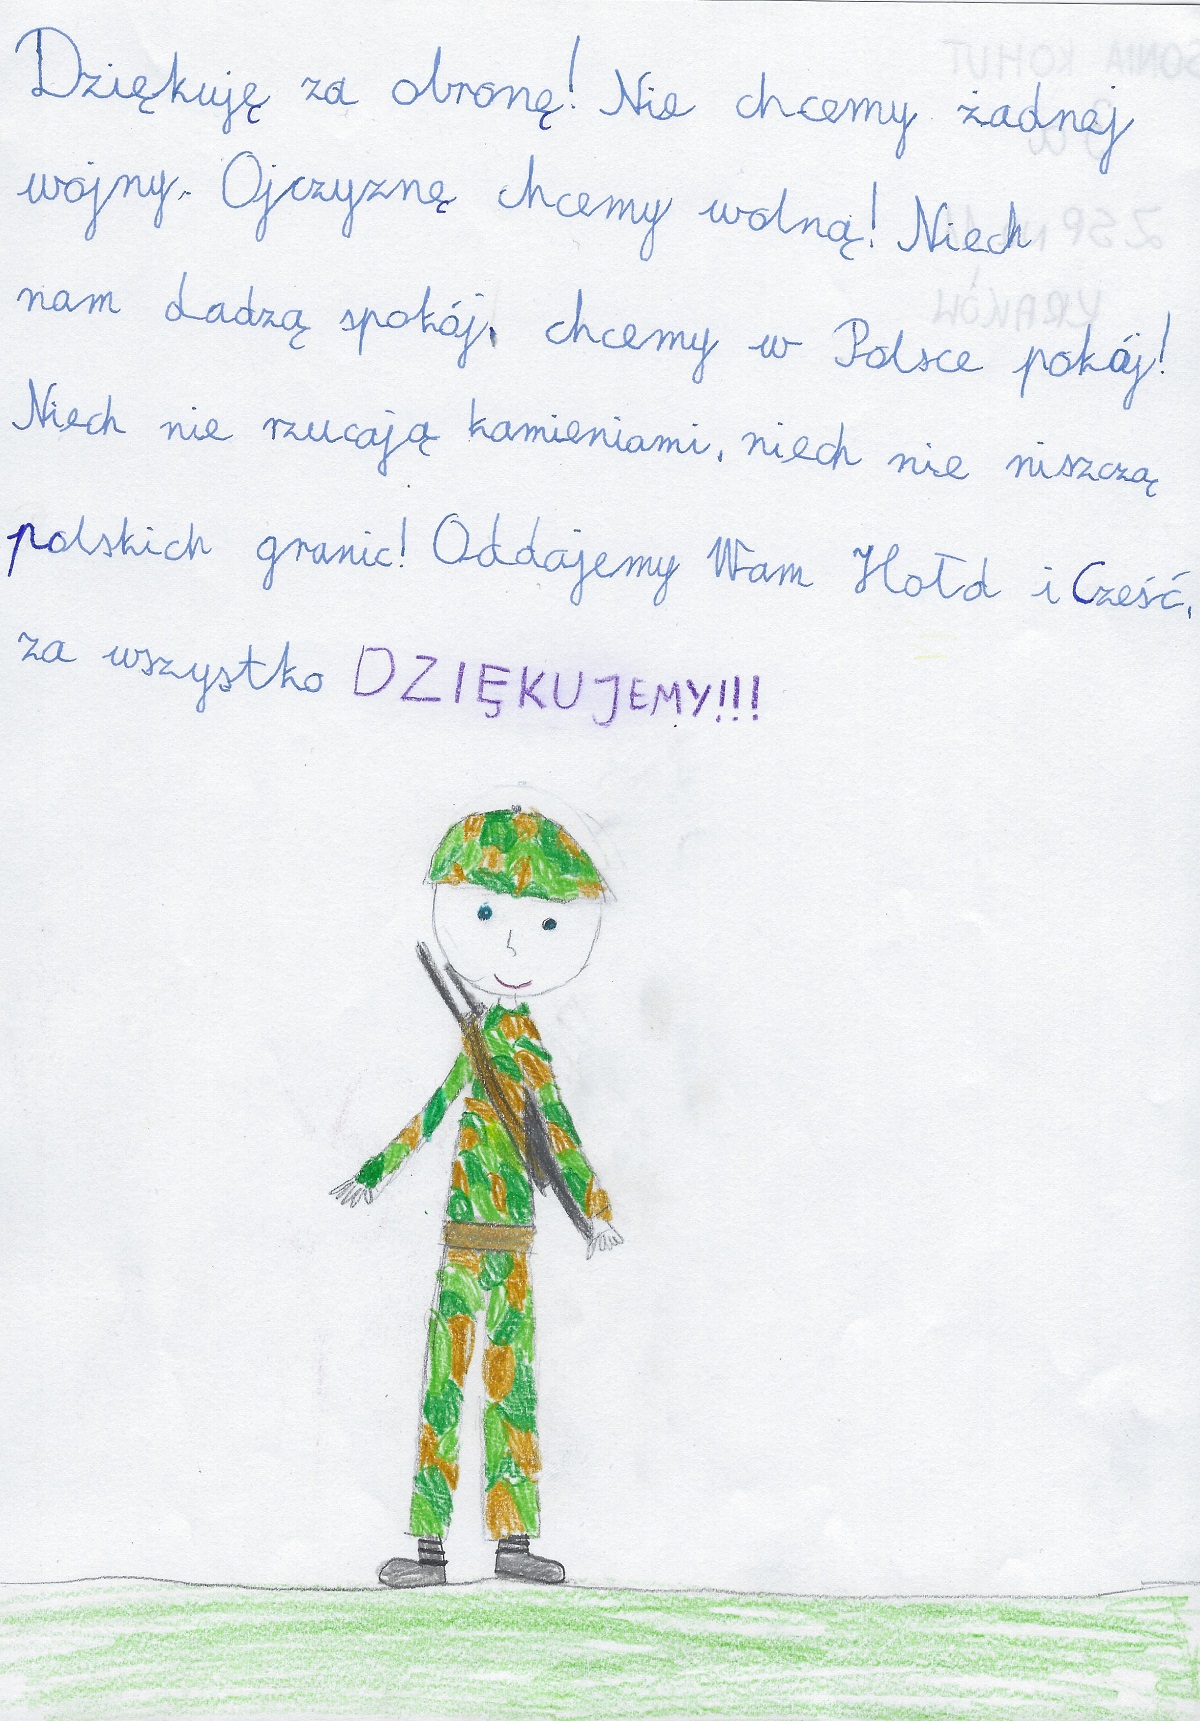 Dziękuję za obronę! Nie chcemy żadnej
wojny. Ojczyznę chcemy wolną! Niech
nam dadzą spokój, chcemy w Polsce pokój!
Niech nie rzucają kamieniami, niech nie niszczą
polskich granic! Oddajemy Wam Hołd i Cześć,
za wszystko DZIĘKUJEMY!!!